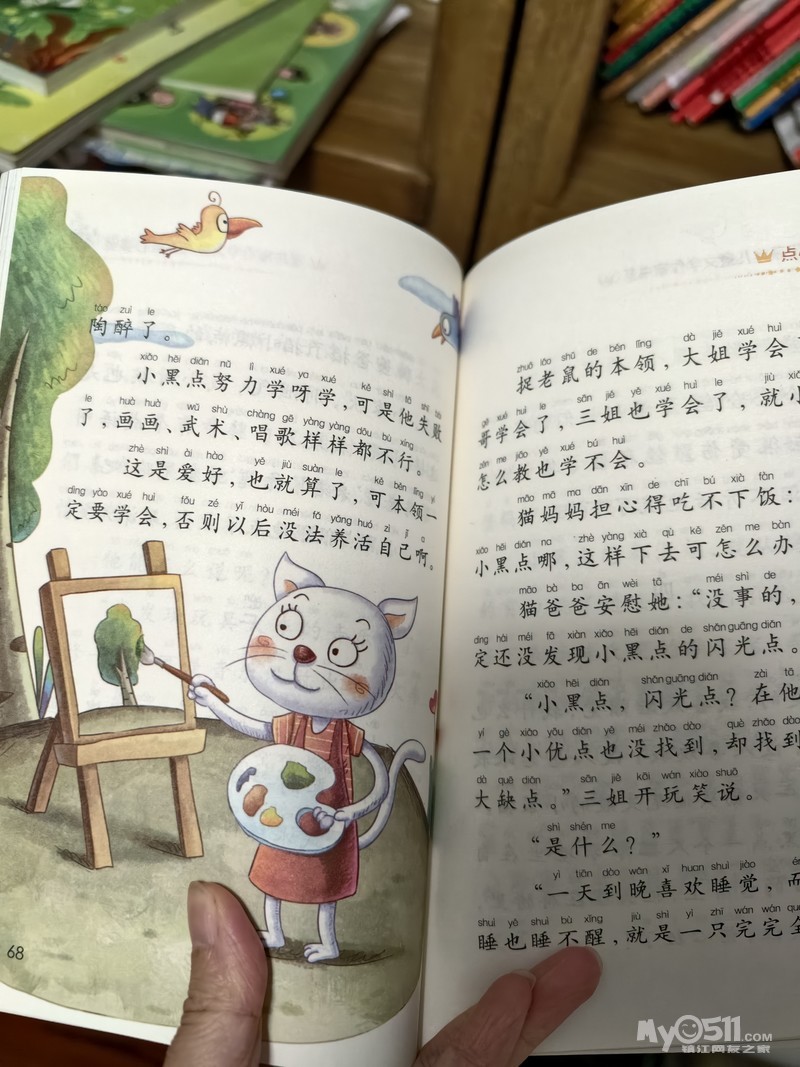 táo zuì le
陶醉了。
xiǎo hēi diǎn nǔ lì xué ya xué kě shì tā shī bài
小黑点努力学呀学，可是他失败
le huà huà wǔ shù chàng gē yàng yàng dōu bù xíng
了，画画、武术、唱歌样样都不行。
zhè shì ài hào yě jiù suàn le kě běn lǐng yí
这是爱好，也就算了，可本领一
dìng yào xué huì fǒu zé yǐ hòu méi fǎ yǎng huó zì jǐ a
定要学会，否则以后没法养活自己啊。
68
点
zhuō lǎo shǔ de běn lǐng dà jiě xué huì
捉老鼠的本领，大姐学会了
gē xué huì le sān jiě yě xué huì le jiù xiǎo
哥学会了，三姐也学会了，就小
zěn me jiāo yě xué bú huì
怎么教也学不会。
māo mā ma dān xīn de chī bú xià fàn
猫妈妈担心得吃不下饭：
xiǎo hēi diǎn na zhè yàng xià qù kě zěn me bàn
小黑点哪，这样下去可怎么办
māo bà ba ān wèi tā méi shì de
猫爸爸安慰她：“没事的，
dìng hái méi fā xiàn xiǎo hēi diǎn de shǎn guāng diǎn
定还没发现小黑点的闪光点。
xiǎo hēi diǎn shǎn guāng diǎn zài tā
“小黑点，闪光点？在他
yí gè xiǎo yōu diǎn yě méi zhǎo dào què zhǎo dào
一个小优点也没找到，却找到
dà quē diǎn sān jiě kāi wán xiào shuō
大缺点。”三姐开玩笑说。
shì shén me
“是什么？”
yì tiān dào wǎn xǐ huan shuì jiào ér
“一天到晚喜欢睡觉，而
shuì yě shuì bù xǐng jiù shì yì zhī wán wán quán
睡也睡不醒，就是一只完完全
My0511.COM
镇江网友之家